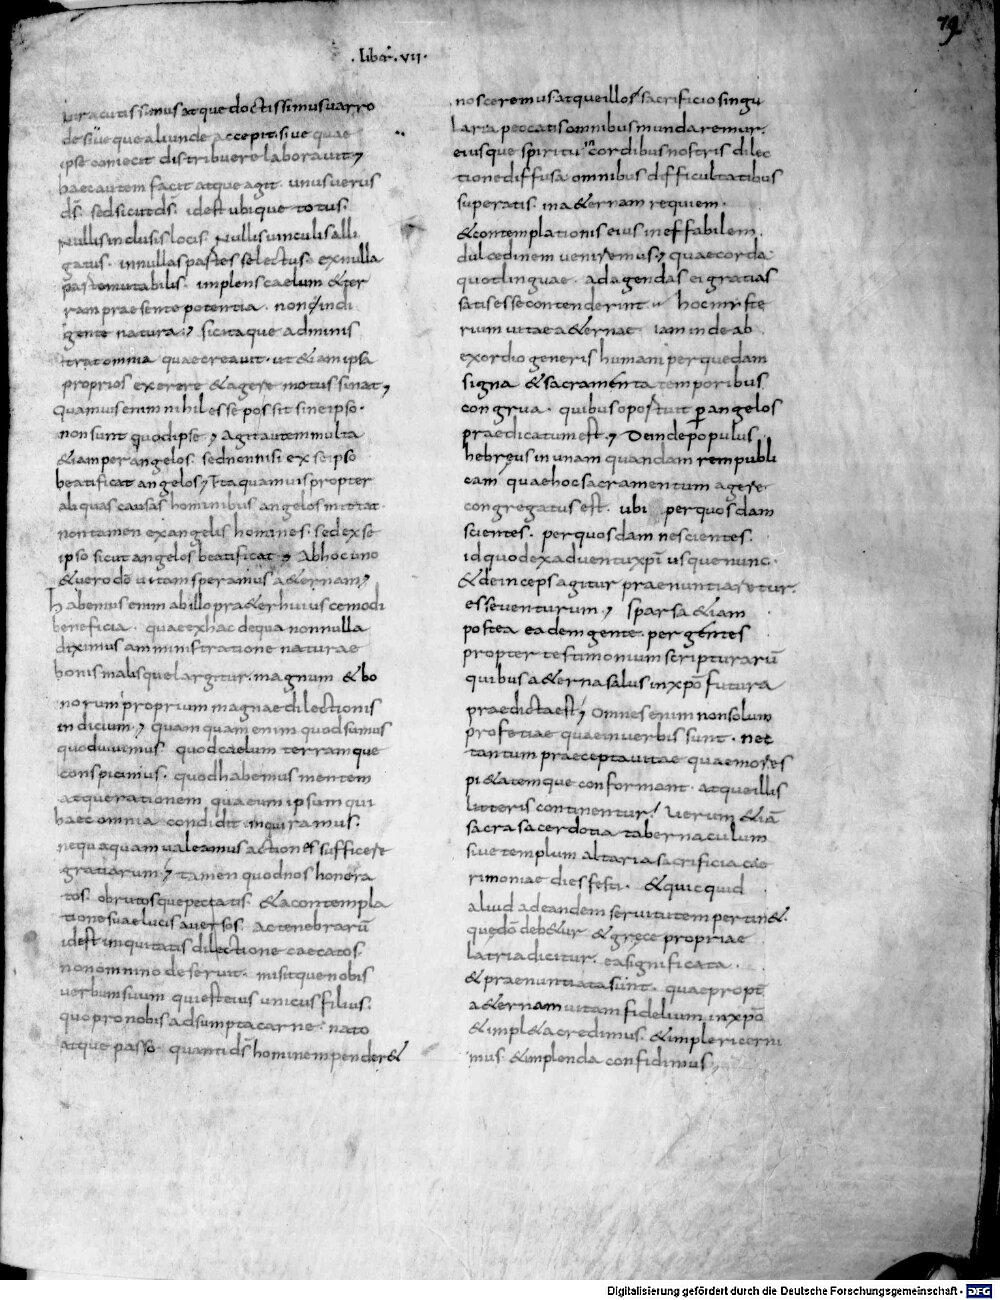 79
· liber · vii ·
vir acutissimus atque doctissimus varro
de sue que aliunde accepit sive quae
ipse coniecit distribuere laboravit,
haec autem facit atque agit · unus verus
ds̄ · sed sicut ds̄ · id est ubique totus ·
Nullis inclusis locis · Nullis vinculis alli
gatus · in nullas partes selectus · ex nulla
parte mutabilis · implens caelum & ter
ram praesente potentia · non indi
gente natura, sic itaque adminis
trat omnia quae creavit · ut & iam ipsa
proprios exerere & agere motus sinat,
quamvis enim nihil esse possit sine ipso ·
non sunt quod ipse, agit autem multa
& iam per angelos · sed non nisi ex se ipso
beatificat angelos, Ita quamvis propter
aliquas causas hominibus angelos mittat ·
non tamen ex angelis homines · sed ex se
ipso sicut angelos beatificat, Ab hoc uno
& vero dō vitam speramus a&ernam,
habemus enim ab illo pra&er huiuscemodi
beneficia · quae ex hac de qua nonnulla
diximus amministratione naturae
bonis malisque largitur · magnum & bo
norum proprium magnae dilectionis
indicium, quamquam enim quod sumus
quod vivimus · quod caelum terramque
conspicimus · quod habemus mentem
atque rationem qua eum ipsum qui
haec omnia condidit · inquiramus ·
nequaquam valeamus actiones sufficere
gratiarum, tamen quod nos honera
tos · obrutosque peccatis · & a contempla
tione suae lucis aversos · ac tenebrarū
id est iniquitatis dilectione caecatos ·
non omnino deseruit · misitque nobis
verbum suum qui est eius unicus filius ·
quo pro nobis adsumpta carne · nato
atque passo · quanti ds̄ hominem pender&
nosceremus atque illo sacrificio singu
lari a peccatis omnibus mundaremur ·
eiusque spiritu in cordibus nostris dilec
tione diffusa omnibus difficultatibus
superatis · in a&ernam requiem ·
& contemplationis eius ineffabilem
dulcedinem veniremus, quae corda
quot linguae · ad agendas ei gratias
satis esse contenderint · hoc myste
rium vitae a&ernae iam inde ab
exordio generis humani per quedam
signa & sacramenta temporibus
congrua · quibus oportuit p̱ angelos
praedicatum est, Deinde populus
hebręus in unam quandam rempubli
cam quae hoc sacramentum ageret
congregatus est · ubi per quosdam
scientes · per quosdam nescientes ·
id quod ex adventu xp̄i usque nunc ·
& deinceps agitur praenuntiaretur
esse venturum, sparsa & iam
postea eadem gente · per gentes
propter testimonium scripturarū
quibus a&erna salus in xp̄o futura
praedicta est, Omnes enim non solum
profetiae quae in verbis sunt · nec
tantum praecepta vitae quae mores
pi&atemque conformant · atque illis
litteris continentur, Verum & iā
sacra sacerdotia tabernaculum
sive templum altaria sacrificia cae
rimoniae dies festi · & quicquid
aliud ad eandem servitutem pertin& ·
quę dō deb&ur & gręce propriae
latria dicitur · ea significata ·
& praenuntiata sunt · quae propt̄
a&ernam vitam fidelium in xp̄o
& impl&a credimus · & impleri cerni
mus · & implenda confidimus,
Digitalisierung gefördert durch die Deutsche Forschungsgemeinschaft - DFG